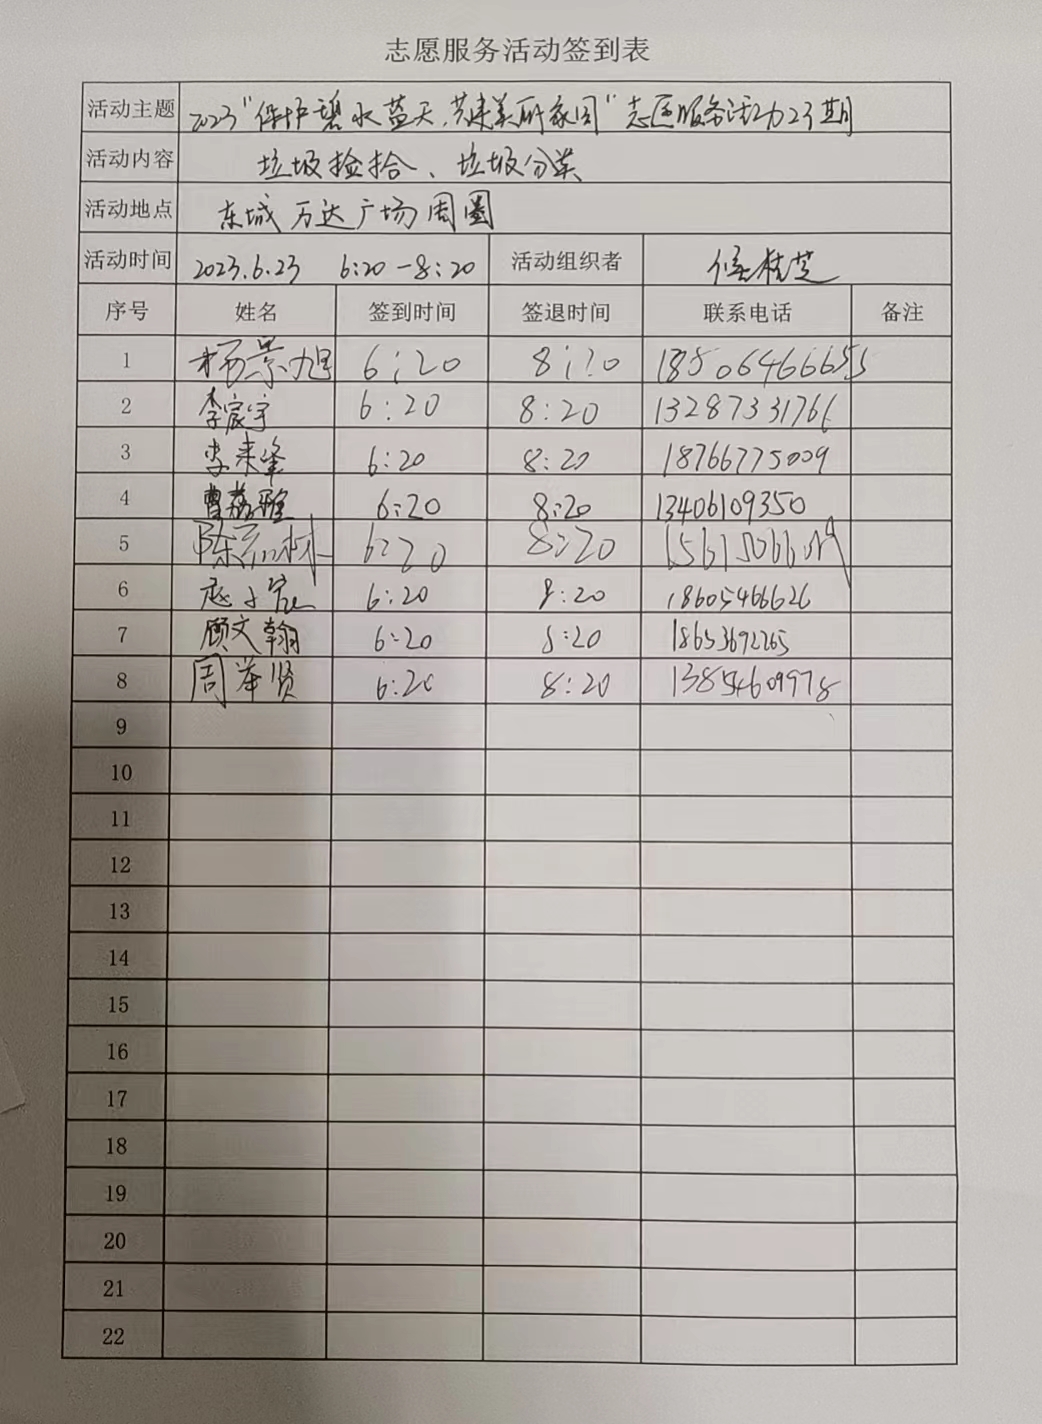 志愿服务活动签到表
活动主题 2023"保护碧水蓝天,共建美丽家园"志愿服务活动23期
活动内容 垃圾捡拾、垃圾分类
活动地点 东城万达广场周围
活动时间 2023.6.23 6:20-8:20 活动组织者 侯桂芝
序号 姓名 签到时间 签退时间 联系电话 备注
1 杨景旭 6:20 8:20 18506466655
2 李宸宇 6:20 8:20 13287331766
3 李来峰 6:20 8:20 18766775009
4 曹荔雅 6:20 8:20 13406109350
5 陈 6:20 8:20
6 赵子宸 6:20 8:20 18605466626
7 顾文翰 6:20 8:20 18653692265
8 周举贤 6:20 8:20 13854609978
9
10
11
12
13
14
15
16
17
18
19
20
21
22